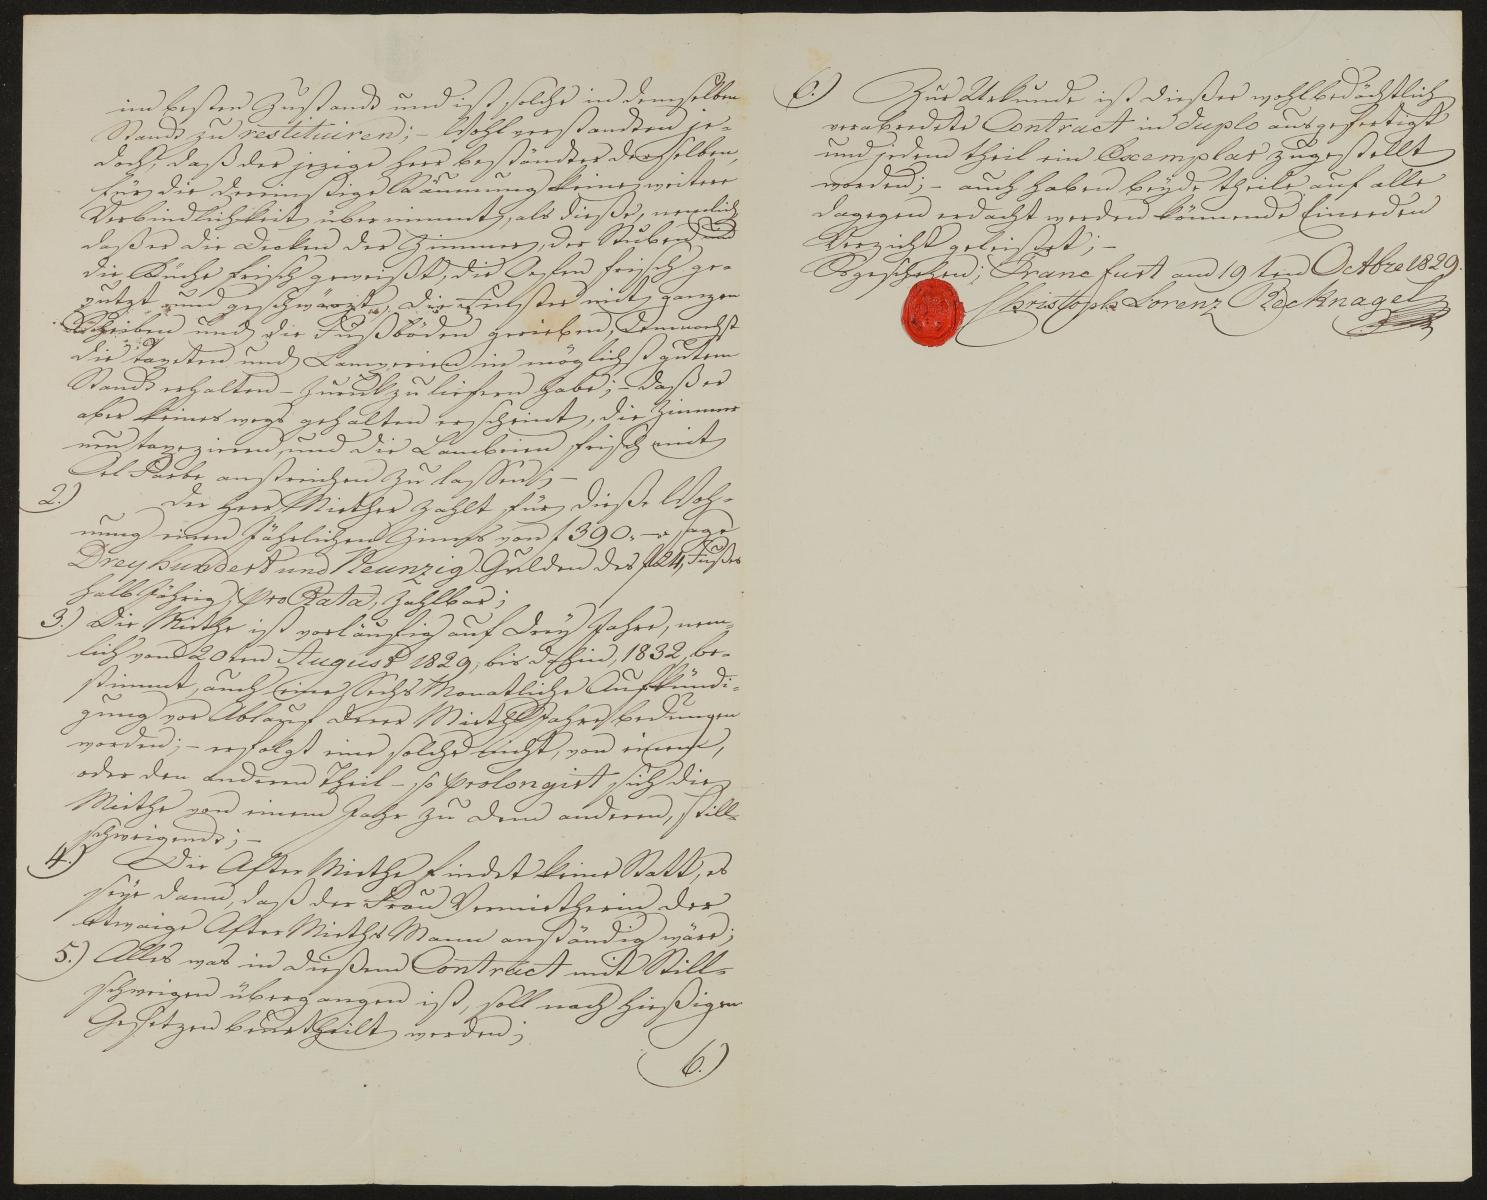 im besten Zustande und ist solche in demselben
Stande zu restituiren; – Wohl verstandten je-
doch, daß der jezige Herr beständter derselben,
für die dereinstige Räumung keine weitere
Verbindlichkeit übernimmt, als diese, nemlich
daß er die Decken der Zimmer, der Stuben und
die Küche frisch geweißt, die Oefen frisch ge-
putzt und geschwärzt, die Fenster mit ganzen
Scheiben und die Fußböden gerieben, demnächst
die Tapeten und Lamperien in möglichst gutem
Stande erhalten – zurück zu liefern habe; – daß er
aber keines wegs gehalten erscheint, die Zimmer
neu tapezieren, und die Lamberien frisch mit
Oel Farbe anstreichen zu lassen; –
2.) Der Herr Miether zahlt für diese Woh-
nung einen Jährlichen Zinns von f 390. – sage
Dreyhundert und Neunzig Gulden des f 24, Fußes
halbjährig, pro Rata, zahlbar;
3.) Die Miethe ist vorläufig auf drey Jahre, nem-
lich vom 20ten August 1829, bis dahin, 1832, be-
stimmt, auch eine Sechs Monatliche Aufkündi-
gung vor Ablauf derer Mieth Jahre bedungen
worden; – erfolgt eine solche nicht, von einem,
oder den anderen Theil – so prolongirt sich die
Miethe von einem Jahr zu dem anderen, still-
schweigend; –
4.) Die After Miethe findet keine Statt, es
seye dann, daß der Frau Vermietherin der
etwaige After Mieths Mann anständig wäre;
5.) Alles was in diesem Contract mit Still-
schweigen übergangen ist, soll nach hiesigen
Gesetzen beurtheilt werden;
6.)
6.) Zur Urkunde ist dieser wohlbedächtlich
verabredete Contract in duplo ausgefertigt
und jedem theil ein Exemplar zugestellt
worden; – auch haben beyde theile auf alle
dagegen erdacht werden könnende Einreden
Verzicht geleistet; –
So geschehen; Francfurt am 19ten Octbre 1829.
Christoph Lorenz Recknagel